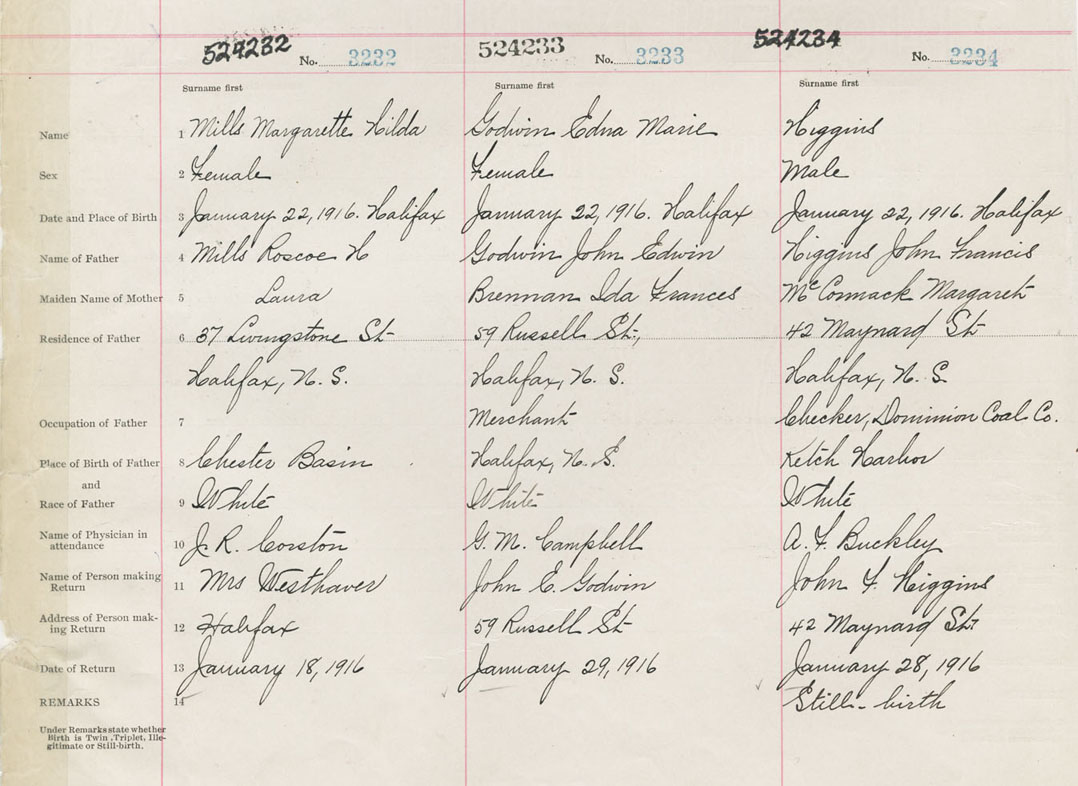 524232 No. 3232 524233 No. 3233 524234 No. 3234
Surname first Surname first Surname first
Name 1 Mills Margarette Hilda Godwin Edna Marie Higgins
Sex 2 Female Female Male
Date and Place of Birth 3 January 22, 1916. Halifax January 22, 1916. Halifax January 22, 1916. Halifax
Name of Father 4 Mills Roscoe H Godwin John Edwin Higgins John Francis
Maiden Name of Mother 5 Laura Brennan Ida Frances McCormack Margaret
Residence of Father 6 37 Livingstone St 59 Russell St., 42 Maynard St
Halifax, N. S. Halifax, N. S. Halifax, N. S.
Occupation of Father 7 Merchant Checker, Dominion Coal Co.
Place of Birth of Father 8 Chester Basin Halifax, N. S. Ketch Harbor
and
Race of Father 9 White White White
Name of Physician in
attendance 10 J. R. Corston G. M. Campbell A. F. Buckley
Name of Person making
Return 11 Mrs Westhaver John E. Godwin John F. Higgins
Address of Person mak-
ing Return 12 Halifax 59 Russell St 42 Maynard St.
Date of Return 13 January 18, 1916 January 29, 1916 January 28, 1916
REMARKS 14 Still-birth
Under Remarks state whether
Birth is Twin, Triplet, Ille-
gitimate or Still-birth.